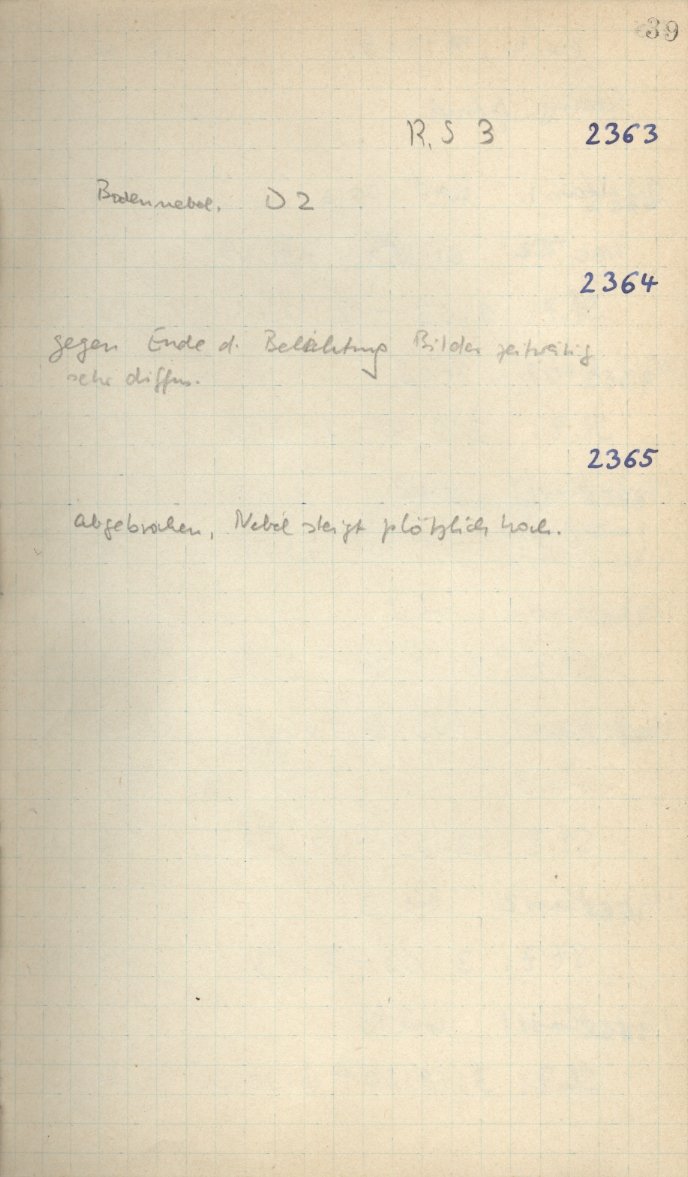 39
R. S 3 2363
Bodennebel. D 2
2364
gegen Ende d. Belichtung Bilder zeitweilig
sehr diffus.
2365
abgebrochen, Nebel steigt plötzlich hoch.